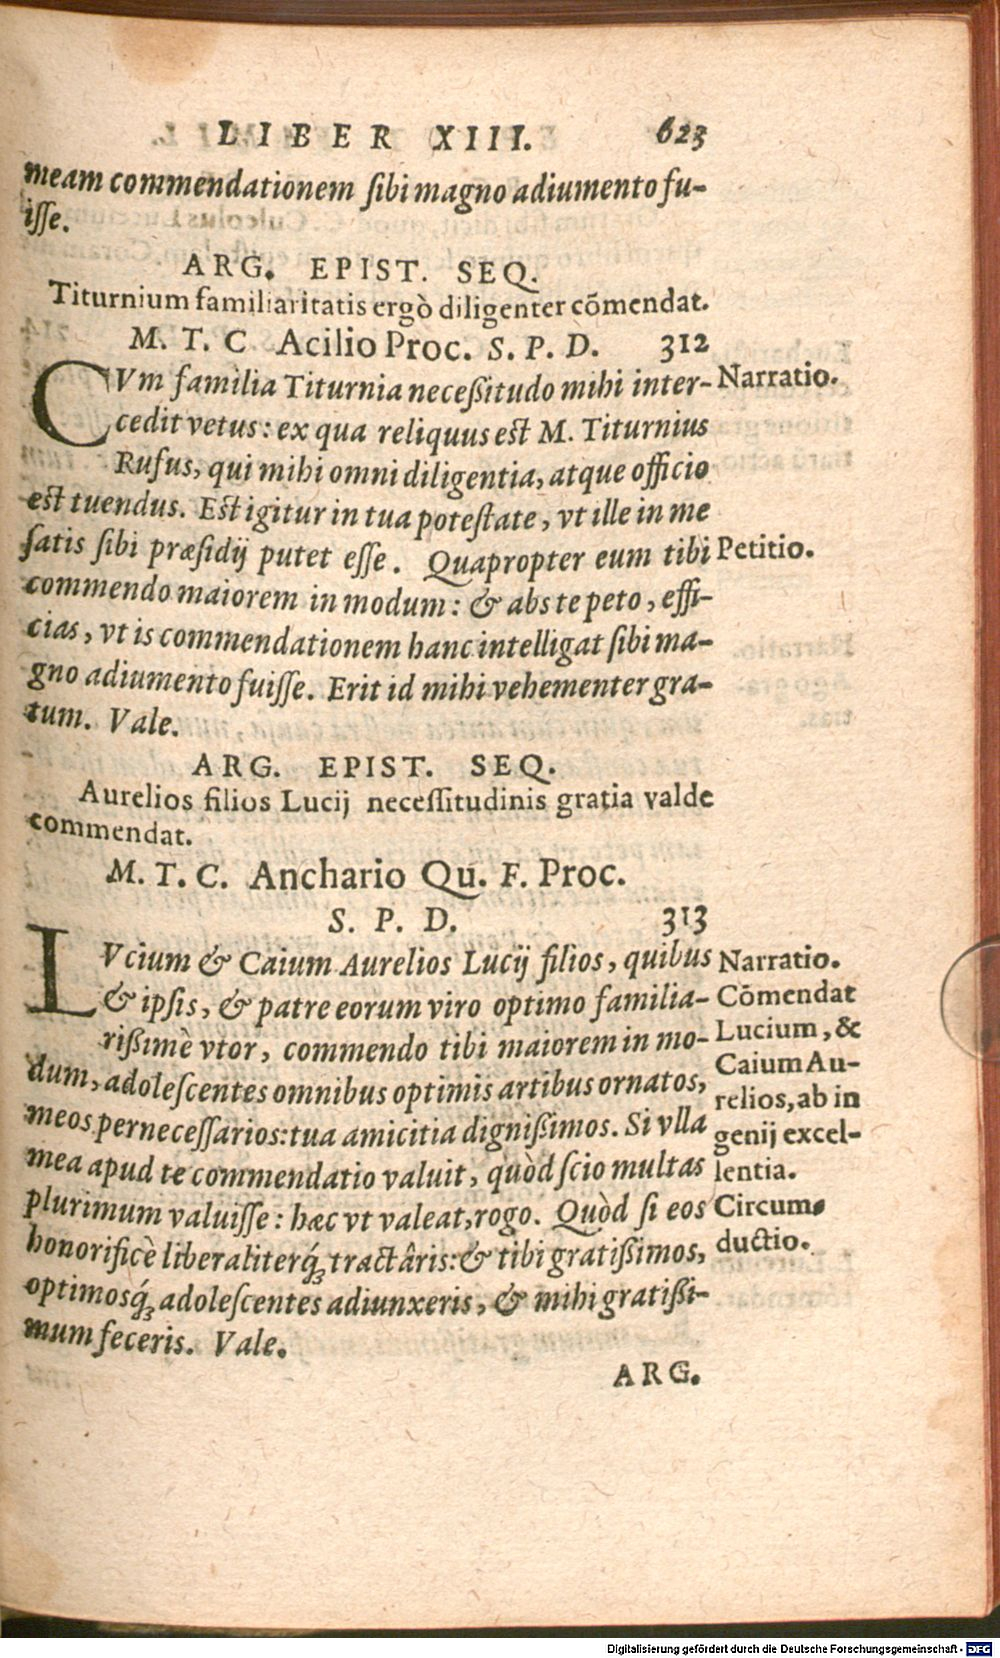 LIBER XIII. 623
meam commendationem sibi magno adiumento fu-
isse.
ARG. EPIST. SEQ.
Titurnium familiaritatis ergò diligenter cōmendat.
M. T. C Acilio Proc. S. P. D. 312
CVm familia Titurnia neceßitudo mihi inter-
cedit vetus: ex qua reliquus est M. Titurnius
Rufus, qui mihi omni diligentia, atque officio
est tuendus. Est igitur in tua potestate, vt ille in me
satis sibi præsidij putet esse. Quapropter eum tibi
commendo maiorem in modum: & abs te peto, effi-
cias, vt is commendationem hanc intelligat sibi ma-
gno adiumento fuisse. Erit id mihi vehementer gra-
tum. Vale.
Narratio.
Petitio.
ARG. EPIST. SEQ.
Aurelios filios Lucij necessitudinis gratia valde
commendat.
M. T. C. Anchario Qu. F. Proc.
S. P. D. 313
LVcium & Caium Aurelios Lucij filios, quibus
& ipsis, & patre eorum viro optimo familia-
rißimè vtor, commendo tibi maiorem in mo-
dum, adolescentes omnibus optimis artibus ornatos,
meos pernecessarios: tua amicitia dignißimos. Si vlla
mea apud te commendatio valuit, quòd scio multas
plurimum valuisse: hæc vt valeat, rogo. Quòd si eos
honorificè liberaliterq́; tractâris: & tibi gratißimos,
optimosq́; adolescentes adiunxeris, & mihi gratißi-
mum feceris. Vale.
Narratio.
Cōmendat
Lucium, &
Caium Au-
relios, ab in
genij excel-
lentia.
Circum-
ductio.
ARG.
Digitalisierung gefördert durch die Deutsche Forschungsgemeinschaft - DFG